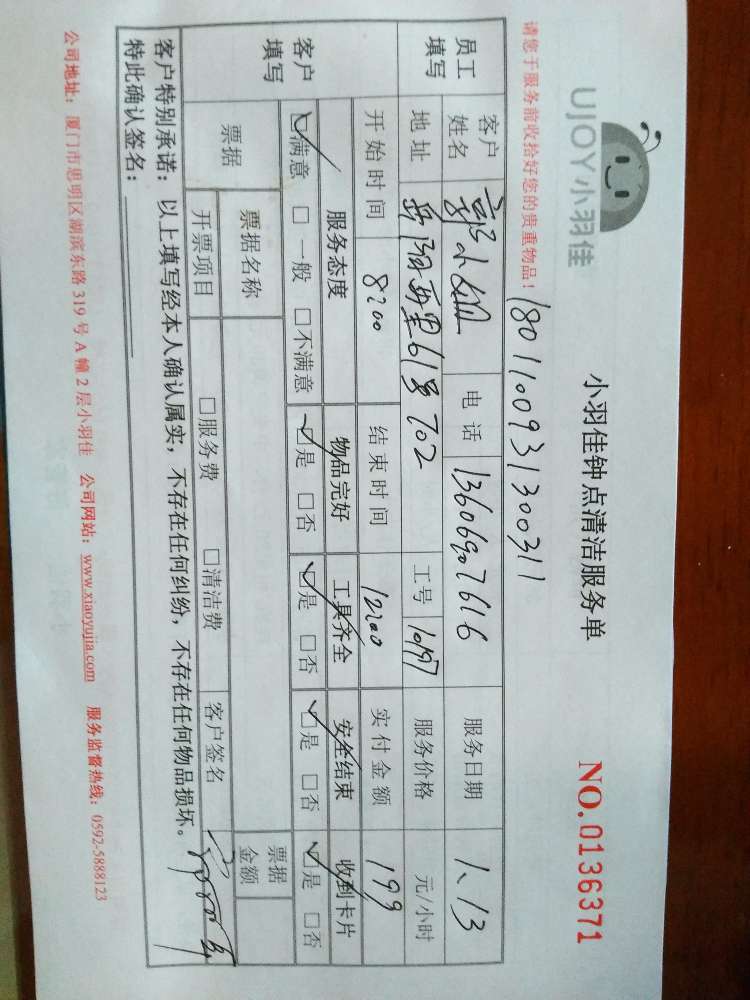 UJOY小羽佳
小羽佳钟点清洁服务单
NO.0136371
请您于服务前收拾好您的贵重物品!
180110093130031
员工填写
客户姓名 郭小姐 电话 13606907616 服务日期 1、13
地址 岳阳西里61号702 工号 1097 服务价格 元/小时
开始时间 8:00 结束时间 12:00 实付金额 199
客户填写
服务态度 物品完好 工具齐全 安全结束 收到卡片
☑满意 □一般 □不满意 ☑是 □否 ☑是 □否 ☑是 □否 ☑是 □否
票据 票据名称 票据金额
开票项目 □服务费 □清洁费 客户签名
客户特别承诺：以上填写经本人确认属实，不存在任何纠纷，不存在任何物品损坏。
特此确认签名：
公司地址：厦门市思明区湖滨东路319号A幢2层小羽佳 公司网站：www.xiaoyujia.com 服务监督热线：0592-5888123